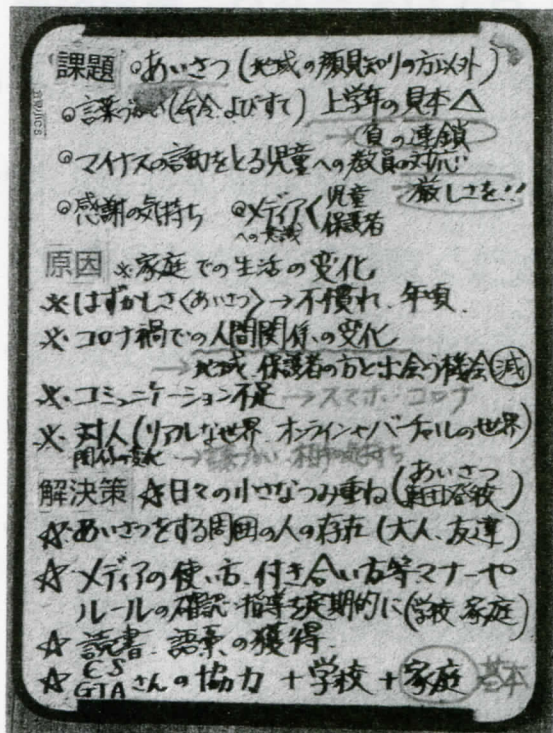 課題 ◎あいさつ(地域の顔見知りの方以外)
◎言葉づかい(命令、よびすて) 上学年の見本△
→負の連鎖
◎マイナスの言動をとる児童への教員の対応‥
厳しさを!!
◎感謝の気持ち ◎メディア〈児童
への意識 保護者
原因 ※家庭での生活の変化
※はずかしさ〈あいさつ〉→不慣れ、年頃
※コロナ禍での人間関係の変化
→地域、保護者の方と出会う機会 減
※コミュニケーション不足→スマホ・コロナ
※対人(リアルな世界、オンラインやバーチャルの世界)
関係の変化 →言葉づかい、相手の気持ち
解決策 ☆日々の小さなつみ重ね(あいさつ
登校)
☆あいさつをする周囲の人の存在(大人、友達)
☆メディアの使い方、付き合い方等マナーや
ルールの確認・指導を定期的に(学校、家庭)
☆読書、語彙の獲得
☆CS
GTAさんの協力+学校+家庭 基本